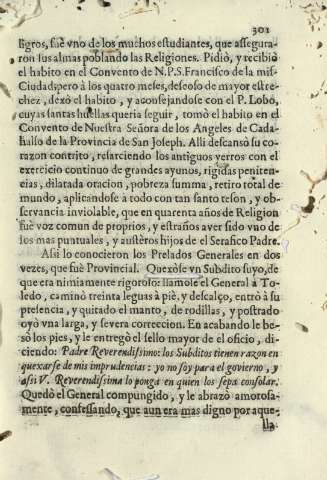 301
ligros, fuè vno de los muchos estudiantes, que assegura-
ron sus almas poblando las Religiones. Pidiò, y recibiò
el habito en el Convento de N.P.S. Francisco de la mis-
Ciudad; pero à los quatro meses, deseoso de mayor estre-
chez, dexò el habito, y aconsejandose con el P. Lobo,
cuyas santas huellas queria seguir, tomò el habito en el
Convento de Nuestra Señora de los Angeles de Cada-
halso de la Provincia de San Joseph. Alli descansò su co-
razon contrito, resarciendo los antiguos yerros con el
exercicio continuo de grandes ayunos, rigidas peniten-
cias, dilatada oracion, pobreza summa, retiro total de
mundo, aplicandose à todo con tan santo teson, y ob-
servancia inviolable, que en quarenta años de Religion
fuè voz comun de proprios, y estraños aver sido vno de
los mas puntuales, y austèros hijos de el Serafico Padre.
Assi lo conocieron los Prelados Generales en dos
vezes, que fuè Provincial. Quexòse vn Subdito suyo, de
que era nimiamente rigoroso: llamòle el General à To-
ledo, caminò treinta leguas à piè, y descalço, entrò à su
presencia, y quitado el manto, de rodillas, y postrado
oyò vna larga, y severa correccion. En acabando le be-
sò los pies, y le entregò el sello mayor de el oficio, di-
ciendo: Padre Reverendissimo: los Subditos tienen razon en
quexarse de mis imprudencias: yo no soy para el govierno, y
assi V. Reverendissima lo ponga en quien los sepa consolar.
Quedò el General compungido, y le abrazò amorosa-
mente, confessando, que aun era mas digno por aque-
lla